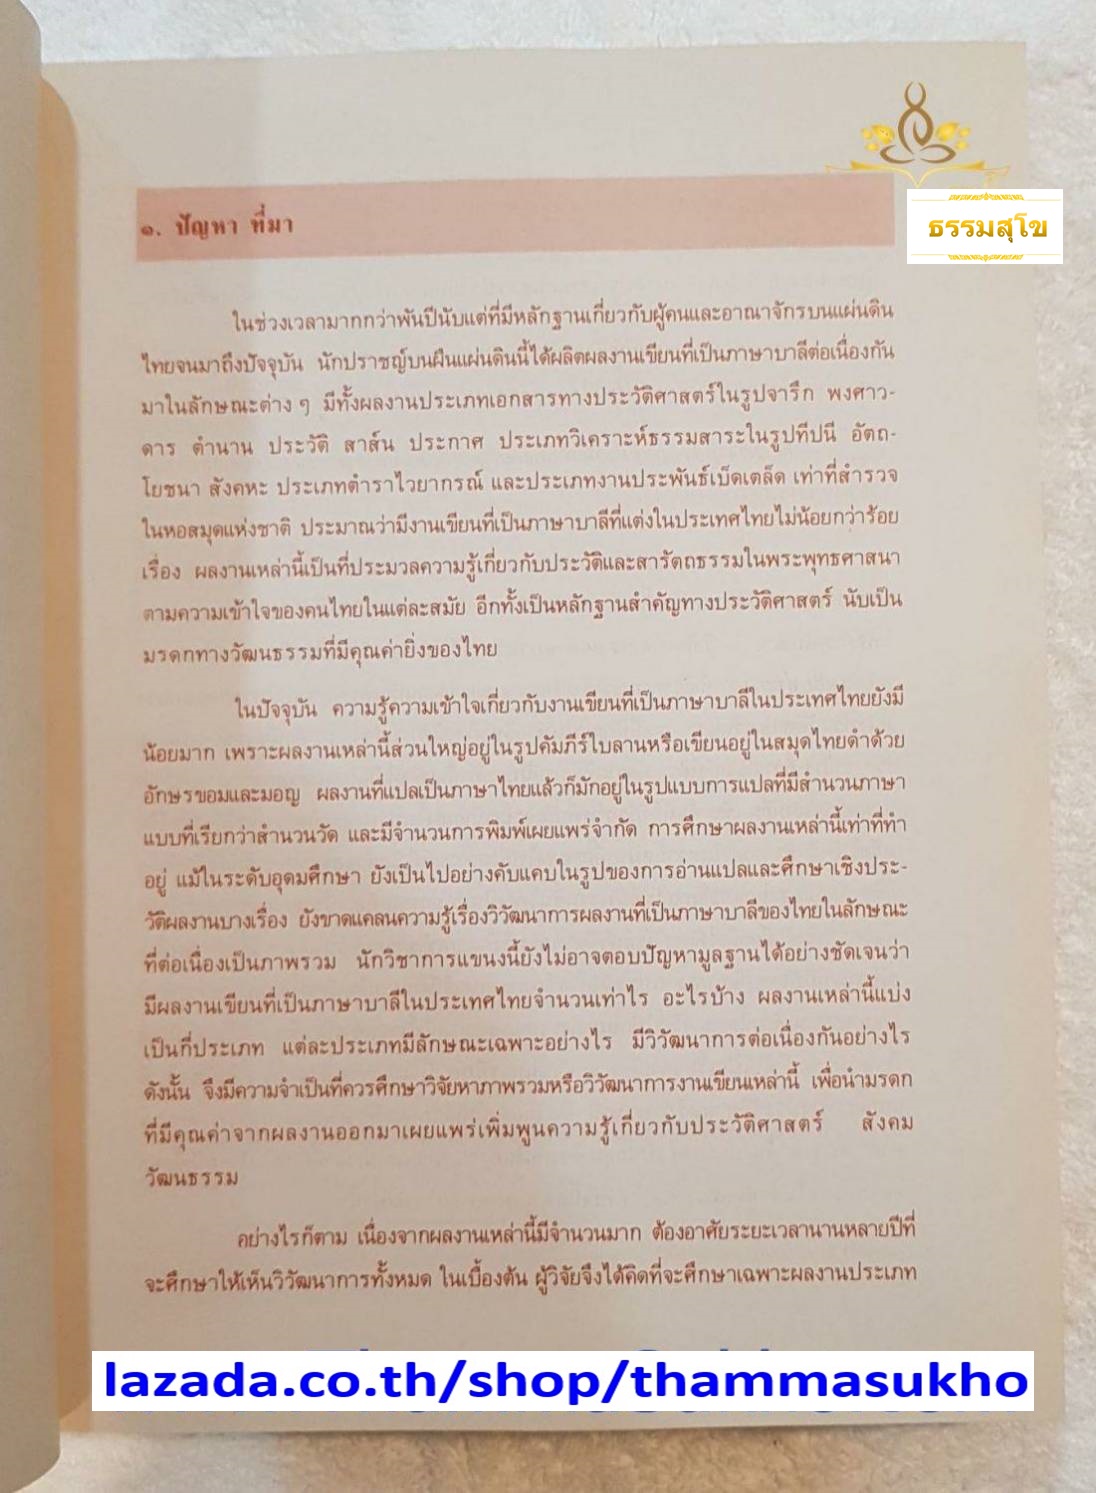 ธรรมสุโข
๑. ปัญหา ที่มา
ในช่วงเวลามากกว่าพันปีนับแต่ที่มีหลักฐานเกี่ยวกับผู้คนและอาณาจักรบนแผ่นดิน
ไทยจนมาถึงปัจจุบัน นักปราชญ์บนผืนแผ่นดินนี้ได้ผลิตผลงานเขียนที่เป็นภาษาบาลีต่อเนื่องกัน
มาในลักษณะต่าง ๆ มีทั้งผลงานประเภทเอกสารทางประวัติศาสตร์ในรูปจารึก พงศาว-
ดาร ตำนาน ประวัติ สาส์น ประกาศ ประเภทวิเคราะห์ธรรมสาระในรูปทีปนี อัตถ-
โยชนา สังคหะ ประเภทตำราไวยากรณ์ และประเภทงานประพันธ์เบ็ดเตล็ด เท่าที่สำรวจ
ในหอสมุดแห่งชาติ ประมาณว่ามีงานเขียนที่เป็นภาษาบาลีที่แต่งในประเทศไทยไม่น้อยกว่าร้อย
เรื่อง ผลงานเหล่านี้เป็นที่ประมวลความรู้เกี่ยวกับประวัติและสารัตถธรรมในพระพุทธศาสนา
ตามความเข้าใจของคนไทยในแต่ละสมัย อีกทั้งเป็นหลักฐานสำคัญทางประวัติศาสตร์ นับเป็น
มรดกทางวัฒนธรรมที่มีคุณค่ายิ่งของไทย
ในปัจจุบัน ความรู้ความเข้าใจเกี่ยวกับงานเขียนที่เป็นภาษาบาลีในประเทศไทยยังมี
น้อยมาก เพราะผลงานเหล่านี้ส่วนใหญ่อยู่ในรูปคัมภีร์ใบลานหรือเขียนอยู่ในสมุดไทยดำด้วย
อักษรขอมและมอญ ผลงานที่แปลเป็นภาษาไทยแล้วก็มักอยู่ในรูปแบบการแปลที่มีสำนวนภาษา
แบบที่เรียกว่าสำนวนวัด และมีจำนวนการพิมพ์เผยแพร่จำกัด การศึกษาผลงานเหล่านี้เท่าที่ทำ
อยู่ แม้ในระดับอุดมศึกษา ยังเป็นไปอย่างคับแคบในรูปของการอ่านแปลและศึกษาเชิงประ-
วัติผลงานบางเรื่อง ยังขาดแคลนความรู้เรื่องวิวัฒนาการผลงานที่เป็นภาษาบาลีของไทยในลักษณะ
ที่ต่อเนื่องเป็นภาพรวม นักวิชาการแขนงนี้ยังไม่อาจตอบปัญหามูลฐานได้อย่างชัดเจนว่า
มีผลงานเขียนที่เป็นภาษาบาลีในประเทศไทยจำนวนเท่าไร อะไรบ้าง ผลงานเหล่านี้แบ่ง
เป็นกี่ประเภท แต่ละประเภทมีลักษณะเฉพาะอย่างไร มีวิวัฒนาการต่อเนื่องกันอย่างไร
ดังนั้น จึงมีความจำเป็นที่ควรศึกษาวิจัยหาภาพรวมหรือวิวัฒนาการงานเขียนเหล่านี้ เพื่อนำมรดก
ที่มีคุณค่าจากผลงานออกมาเผยแพร่เพิ่มพูนความรู้เกี่ยวกับประวัติศาสตร์ สังคม
วัฒนธรรม
อย่างไรก็ตาม เนื่องจากผลงานเหล่านี้มีจำนวนมาก ต้องอาศัยระยะเวลานานหลายปีที่
จะศึกษาให้เห็นวิวัฒนาการทั้งหมด ในเบื้องต้น ผู้วิจัยจึงได้คิดที่จะศึกษาเฉพาะผลงานประเภท
lazada.co.th/shop/thammasukho